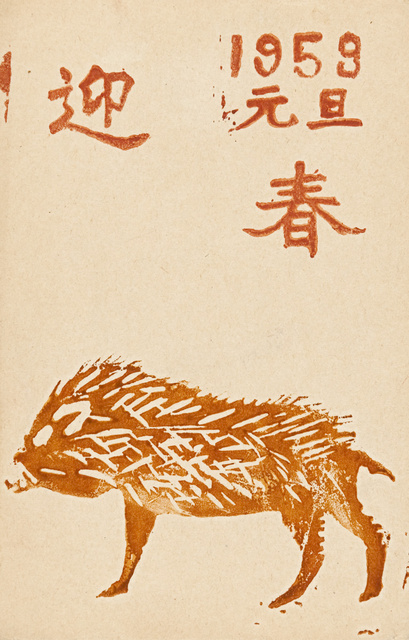 1959
元旦
迎
春